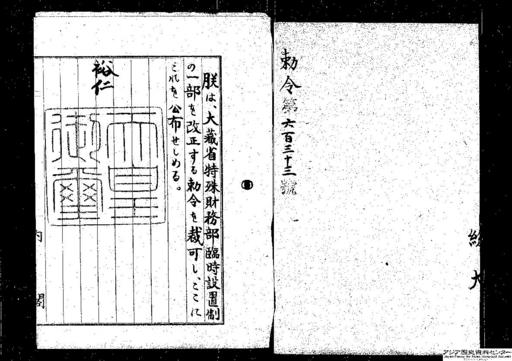 勅令第六百三十三號
総
大
朕は、大藏省特殊財務部臨時設置制
の一部を改正する勅令を裁可し、ここに
これを公布せしめる。
裕仁
天皇
御璽
内
閣
アジア歴史資料センター